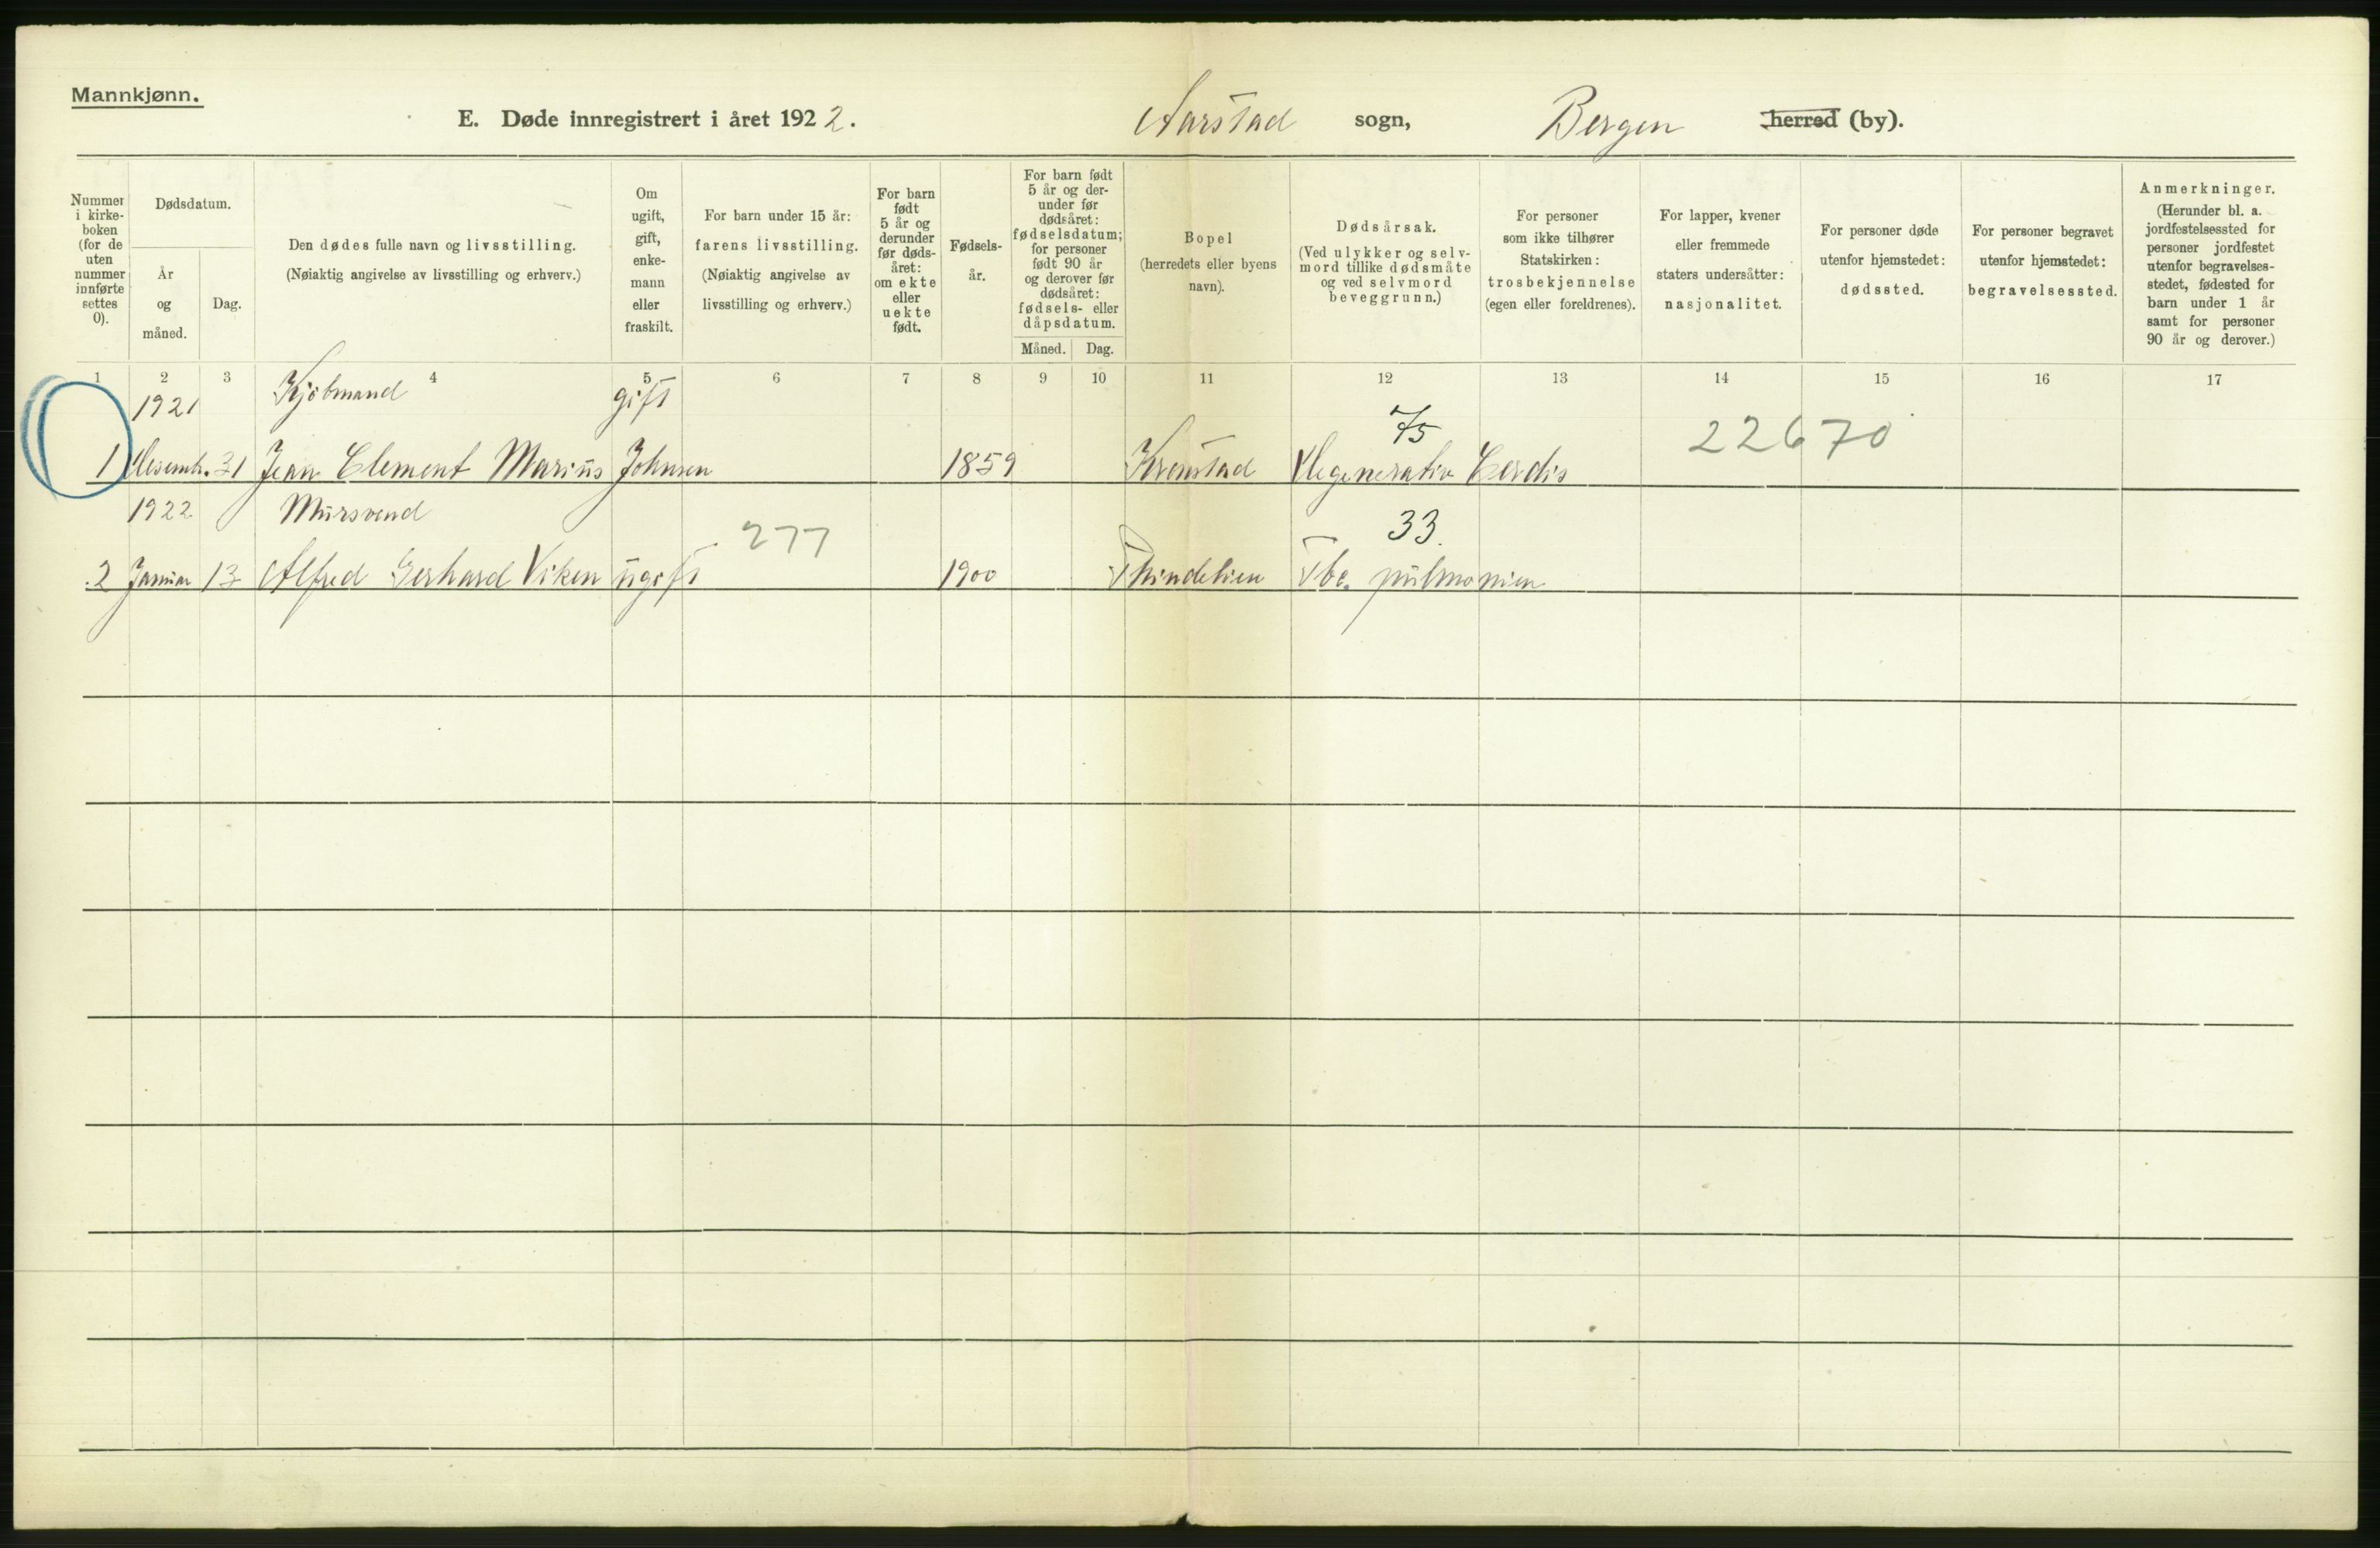 Mannkjønn.
E. Døde innregistrert i året 1922. Aarstad sogn, Bergen herred (by).
Nummer i kirke- boken (for de uten nummer innførte settes 0).
Dødsdatum.
År og måned.
Dag.
Den dødes fulle navn og livsstilling.
(Nøiaktig angivelse av livsstilling og erhverv.)
Om ugift, gift, enke- mann eller fraskilt.
For barn under 15 år:
farens livsstilling.
(Nøiaktig angivelse av livsstilling og erhverv.)
For barn født 5 år og derunder før døds- året: om ekte eller uekte født.
Fødsels- år.
For barn født 5 år og der- under før dødsåret: fødselsdatum; for personer født 90 år og derover før dødsåret: fødsels- eller dåpsdatum.
Måned. Dag.
Bopel
(herredets eller byens navn).
Dødsårsak.
(Ved ulykker og selv- mord tillike dødsmåte og ved selvmord beveggrunn.)
For personer som ikke tilhører Statskirken: trosbekjennelse (egen eller foreldrenes).
For lapper, kvener eller fremmede staters undersåtter: nasjonalitet.
For personer døde utenfor hjemstedet: dødssted.
For personer begravet utenfor hjemstedet: begravelsessted.
Anmerkninger.
(Herunder bl. a. jordfestelsessted for personer jordfestet utenfor begravelses- stedet, fødested for barn under 1 år samt for personer 90 år og derover.)
1 2 3 4 5 6 7 8 9 10 11 12 13 14 15 16 17
1921 Kjøbmand gift 75 22670
1 Desemb. 31 Jean Clement Marius Johnsen 1859 Kronstad Degenerativ Cordis
1922 Mursvend 277 33.
2 Januar 13 Alfred Gerhard Viken ugift 1900 Tbc. pulmonum